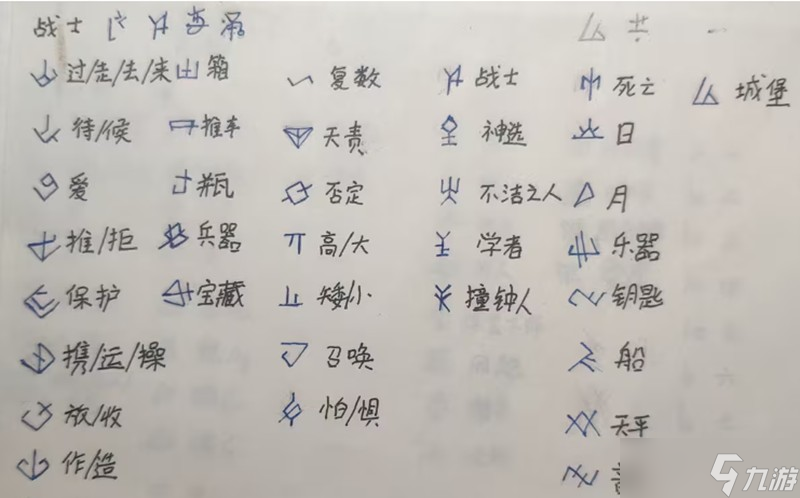 战士
过/走/去/来 箱 复数 战士 死亡 城堡
待/候 推车 天责 神选 日
爱 瓶 否定 不洁之人 月
推/拒 兵器 高/大 学者 乐器
保护 宝藏 矮小 撞钟人 钥匙
携/运/操 召唤 船
放/收 怕/惧 天平
作/造
九游